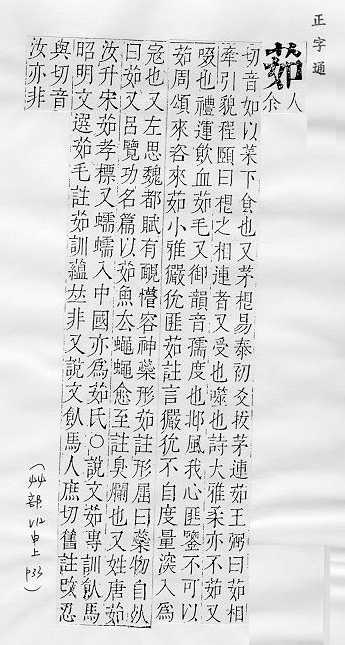 正字通
茹
人余
切音如以菜下食也又茅根易泰初爻拔茅連茹王弼曰茹相
牽引貌程頤曰根之相連者又受也噬也詩大雅柔亦不茹又
啜也禮運飲血茹毛又御韻音孺度也邶風我心匪鑒不可以
茹周頌來咨來茹小雅玁狁匪茹註言玁狁不自度量深入為
寇也又左思魏都賦有靦瞢容神蘂形茹註形屈曰蘂物自死
曰茹又呂覽功名篇以茹魚去蠅蠅愈至註臭爛也又姓唐茹
汝升宋茹孝標又蠕蠕入中國亦為茹氏○說文茹專訓飤馬
昭明文選茹毛註茹訓蘊𠀤非又說文飤馬人庶切舊註改忍
與切音
汝亦非
(艸部 V12 申上 P35)